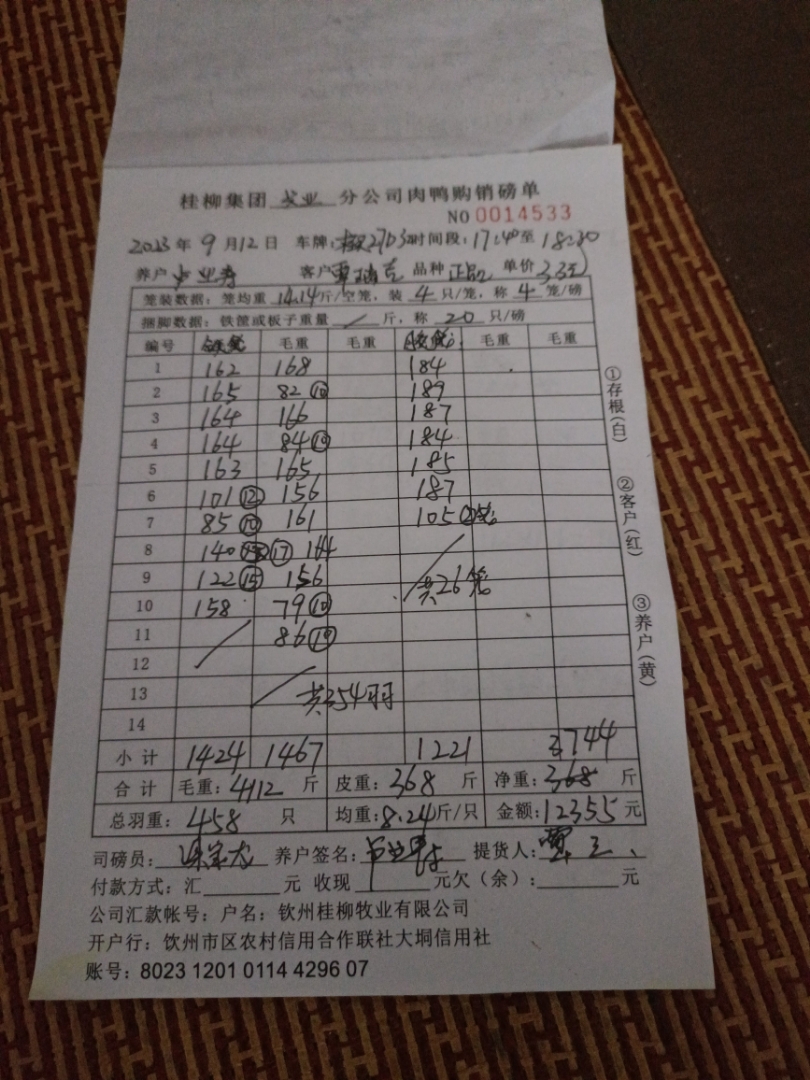 桂柳集团 农业 分公司肉鸭购销磅单
NO 0014533
2023年9月12日 车牌: 2703 时间段:17:40至18:30
养户 客户 品种 单价 3.3元
笼装数据:笼均重14.14斤/空笼,装4只/笼,称4笼/磅
捆脚数据:铁筐或板子重量/斤,称20只/磅
编号 毛重 毛重 毛重 毛重
1 162 168 184
2 165 82⑩ 189
3 164 166 187
4 164 84⑩ 184
5 163 165 185
6 101⑫ 156 187
7 85⑩ 161 105
8 140⑰ 164
9 122⑮ 156 共26笼
10 158 79⑩
11 86⑩
12
13 共354羽
14
小计 1424 1467 1221 3744
合计 毛重:4112斤 皮重:368斤 净重:368斤
总羽重:458只 均重:8.24斤/只 金额:12355元
司磅员: 养户签名: 提货人:
付款方式:汇 元 收现 元欠(余): 元
公司汇款帐号:户名:钦州桂柳牧业有限公司
开户行:饮州市区农村信用合作联社大垌信用社
账号:8023 1201 0114 4296 07
①存根(白)
②客户(红)
③养户(黄)